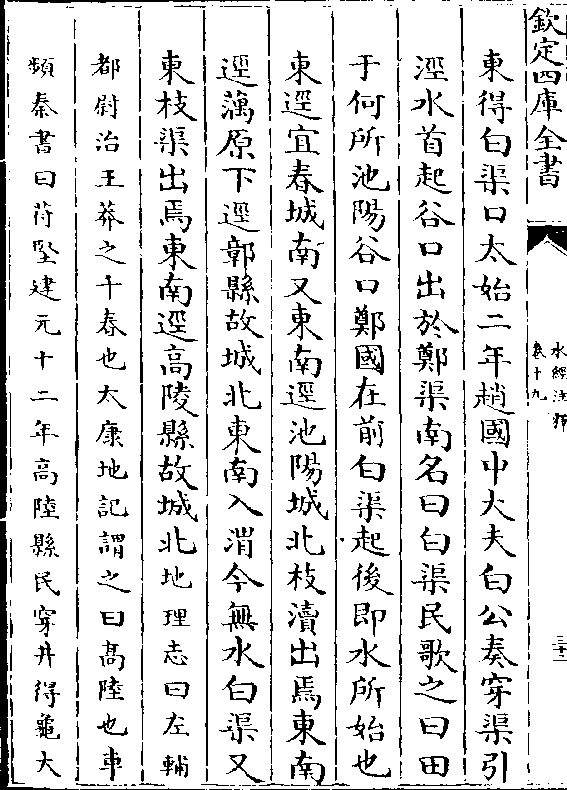 欽定四庫全書
水經注釋
卷十九
東得白渠口太始二年趙國中大夫白公奏穿渠引
涇水首起谷口出於鄭渠南名曰白渠民歌之曰田
于何所池陽谷口鄭國在前白渠起後即水所始也
東逕宜春城南又東南逕池陽城北枝瀆出焉東南
逕藕原下逕鄣縣故城北東南入渭今無水白渠又
東枝渠出焉東南逕高陵縣故城北地理志曰左輔
都尉治王莽之千春也太康地記謂之曰高陸也車
頻秦書曰苻堅建元十二年高陸縣民穿井得龜大